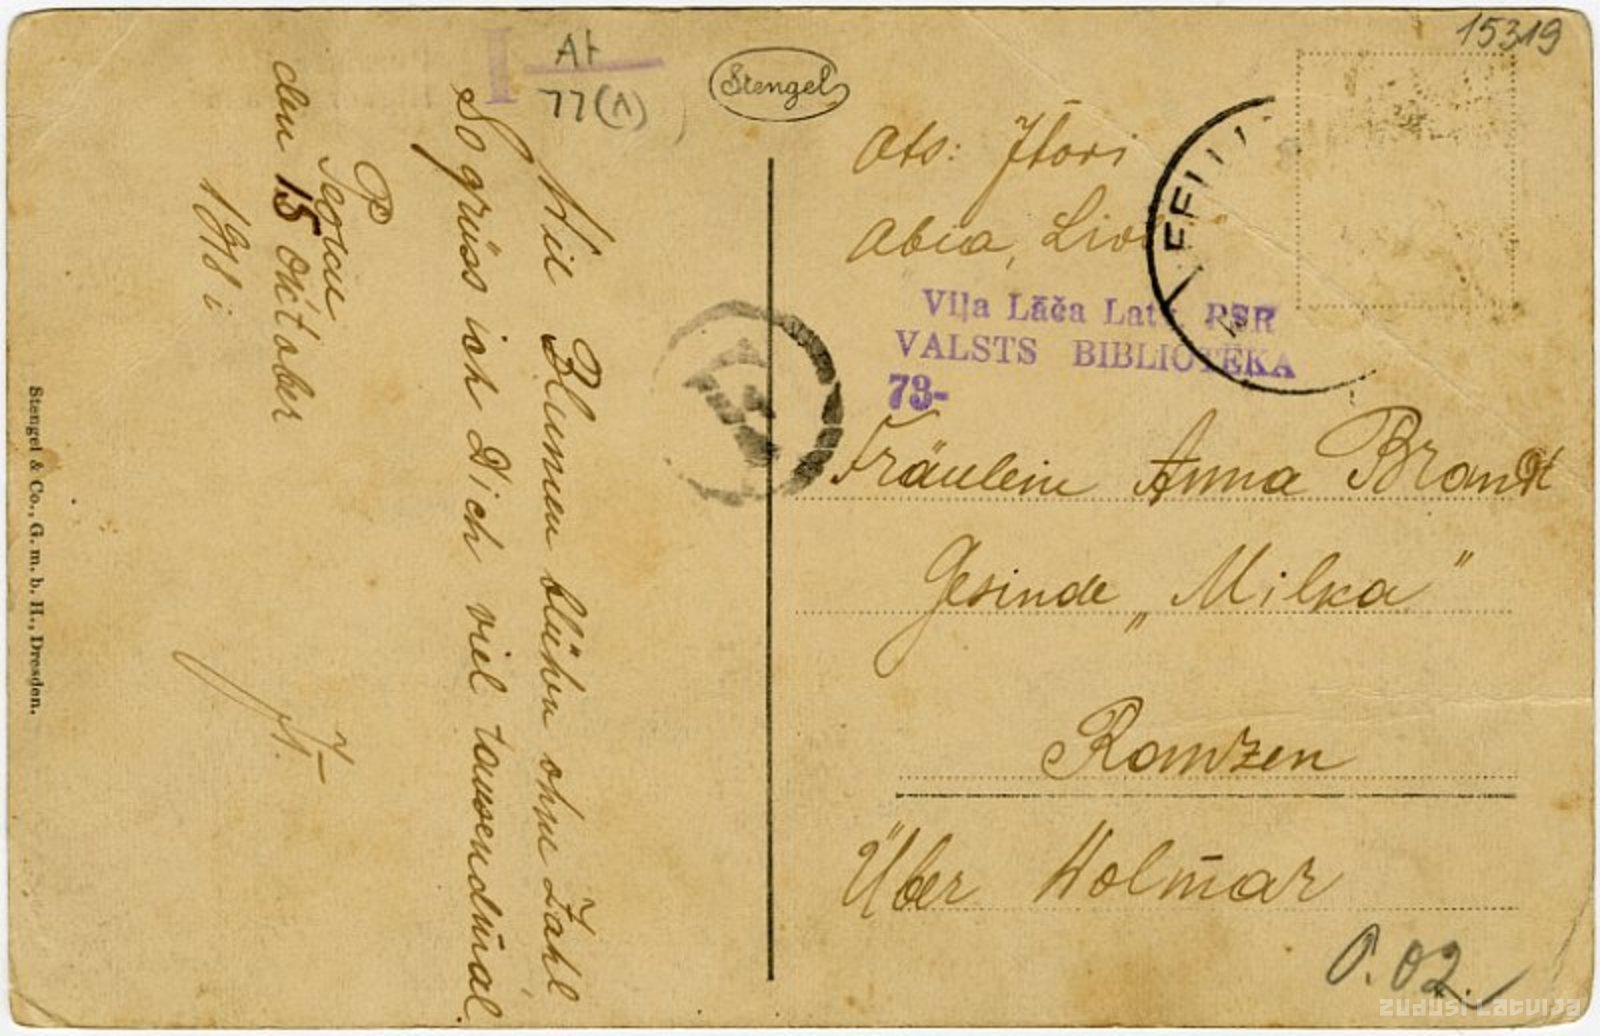 15319
At
77(1)
Stengel
Wie Blumen blühen ohne Zahl
So grüss ich Dich viel tausendmal
P
den 15 Oktober
1918 i
Stengel & Co., G. m. b. H., Dresden.
Ats:
Abia, Liv
FELLI
Viļa Lāča Latv. PSR
VALSTS BIBLIOTĒKA
73-
Fräulein Anna Brandt
Gesinde „Milka"
Ramzen
Über Wolmar
0.02.
zudusi latvija